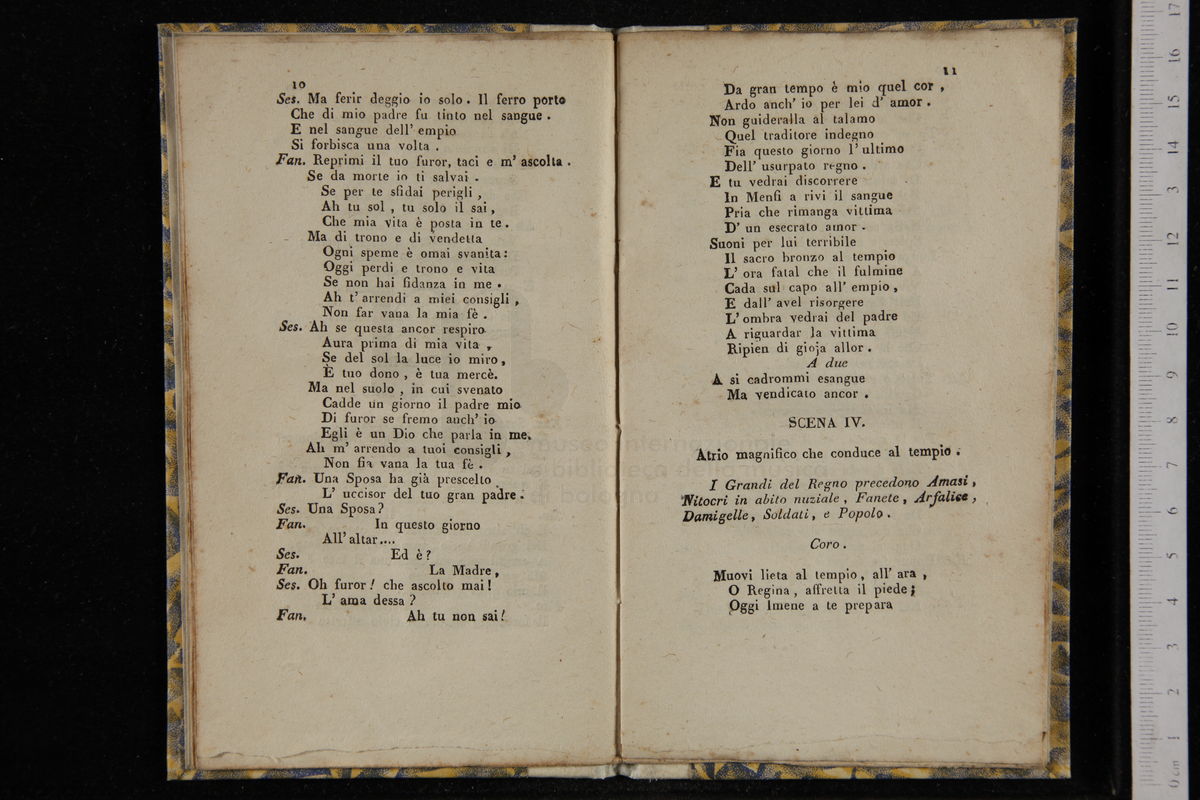 10
Ses. Ma ferir deggio io solo. Il ferro porto
Che di mio padre fu tinto nel sangue.
E nel sangue dell' empio
Si forbisca una volta.
Fan. Reprimi il tuo furor, taci e m' ascolta.
Se da morte io ti salvai.
Se per te sfidai perigli,
Ah tu sol, tu solo il sai,
Che mia vita è posta in te.
Ma di trono e di vendetta
Ogni speme è omai svanita:
Oggi perdi e trono e vita
Se non hai fidanza in me.
Ah t' arrendi a miei consigli,
Non far vana la mia fè.
Ses. Ah se questa ancor respiro
Aura prima di mia vita,
Se del sol la luce io miro,
E tuo dono, è tua mercè.
Ma nel suolo, in cui svenato
Cadde un giorno il padre mio
Di furor se fremo anch' io
Egli è un Dio che parla in me.
Ah m' arrendo a tuoi consigli,
Non fia vana la tua fè.
Fan. Una Sposa ha già prescelto
L' uccisor del tuo gran padre.
Ses. Una Sposa?
Fan. In questo giorno
All' altar....
Ses. Ed è?
Fan. La Madre,
Ses. Oh furor! che ascolto mai!
L' ama dessa?
Fan. Ah tu non sai!
11
Da gran tempo è mio quel cor,
Ardo anch' io per lei d' amor.
Non guideralla al talamo
Quel traditore indegno
Fia questo giorno l' ultimo
Dell' usurpato regno.
E tu vedrai discorrere
In Menfi a rivi il sangue
Pria che rimanga vittima
D' un esecrato amor.
Suoni per lui terribile
Il sacro bronzo al tempio
L' ora fatal che il fulmine
Cada sul capo all' empio,
E dall' avel risorgere
L' ombra vedrai del padre
A riguardar la vittima
Ripien di gioja allor.
A due
A si cadrommi esangue
Ma vendicato ancor.
SCENA IV.
Atrio magnifico che conduce al tempio.
I Grandi del Regno precedono Amasi,
Nitocri in abito nuziale, Fanete, Arfalice,
Damigelle, Soldati, e Popolo.
Coro.
Muovi lieta al tempio, all' ara,
O Regina, affretta il piede;
Oggi Imene a te prepara
museo internazionale
e biblioteca della musica
di bologna
0 cm 1 2 3 4 5 6 7 8 9 10 11 12 13 14 15 16 17